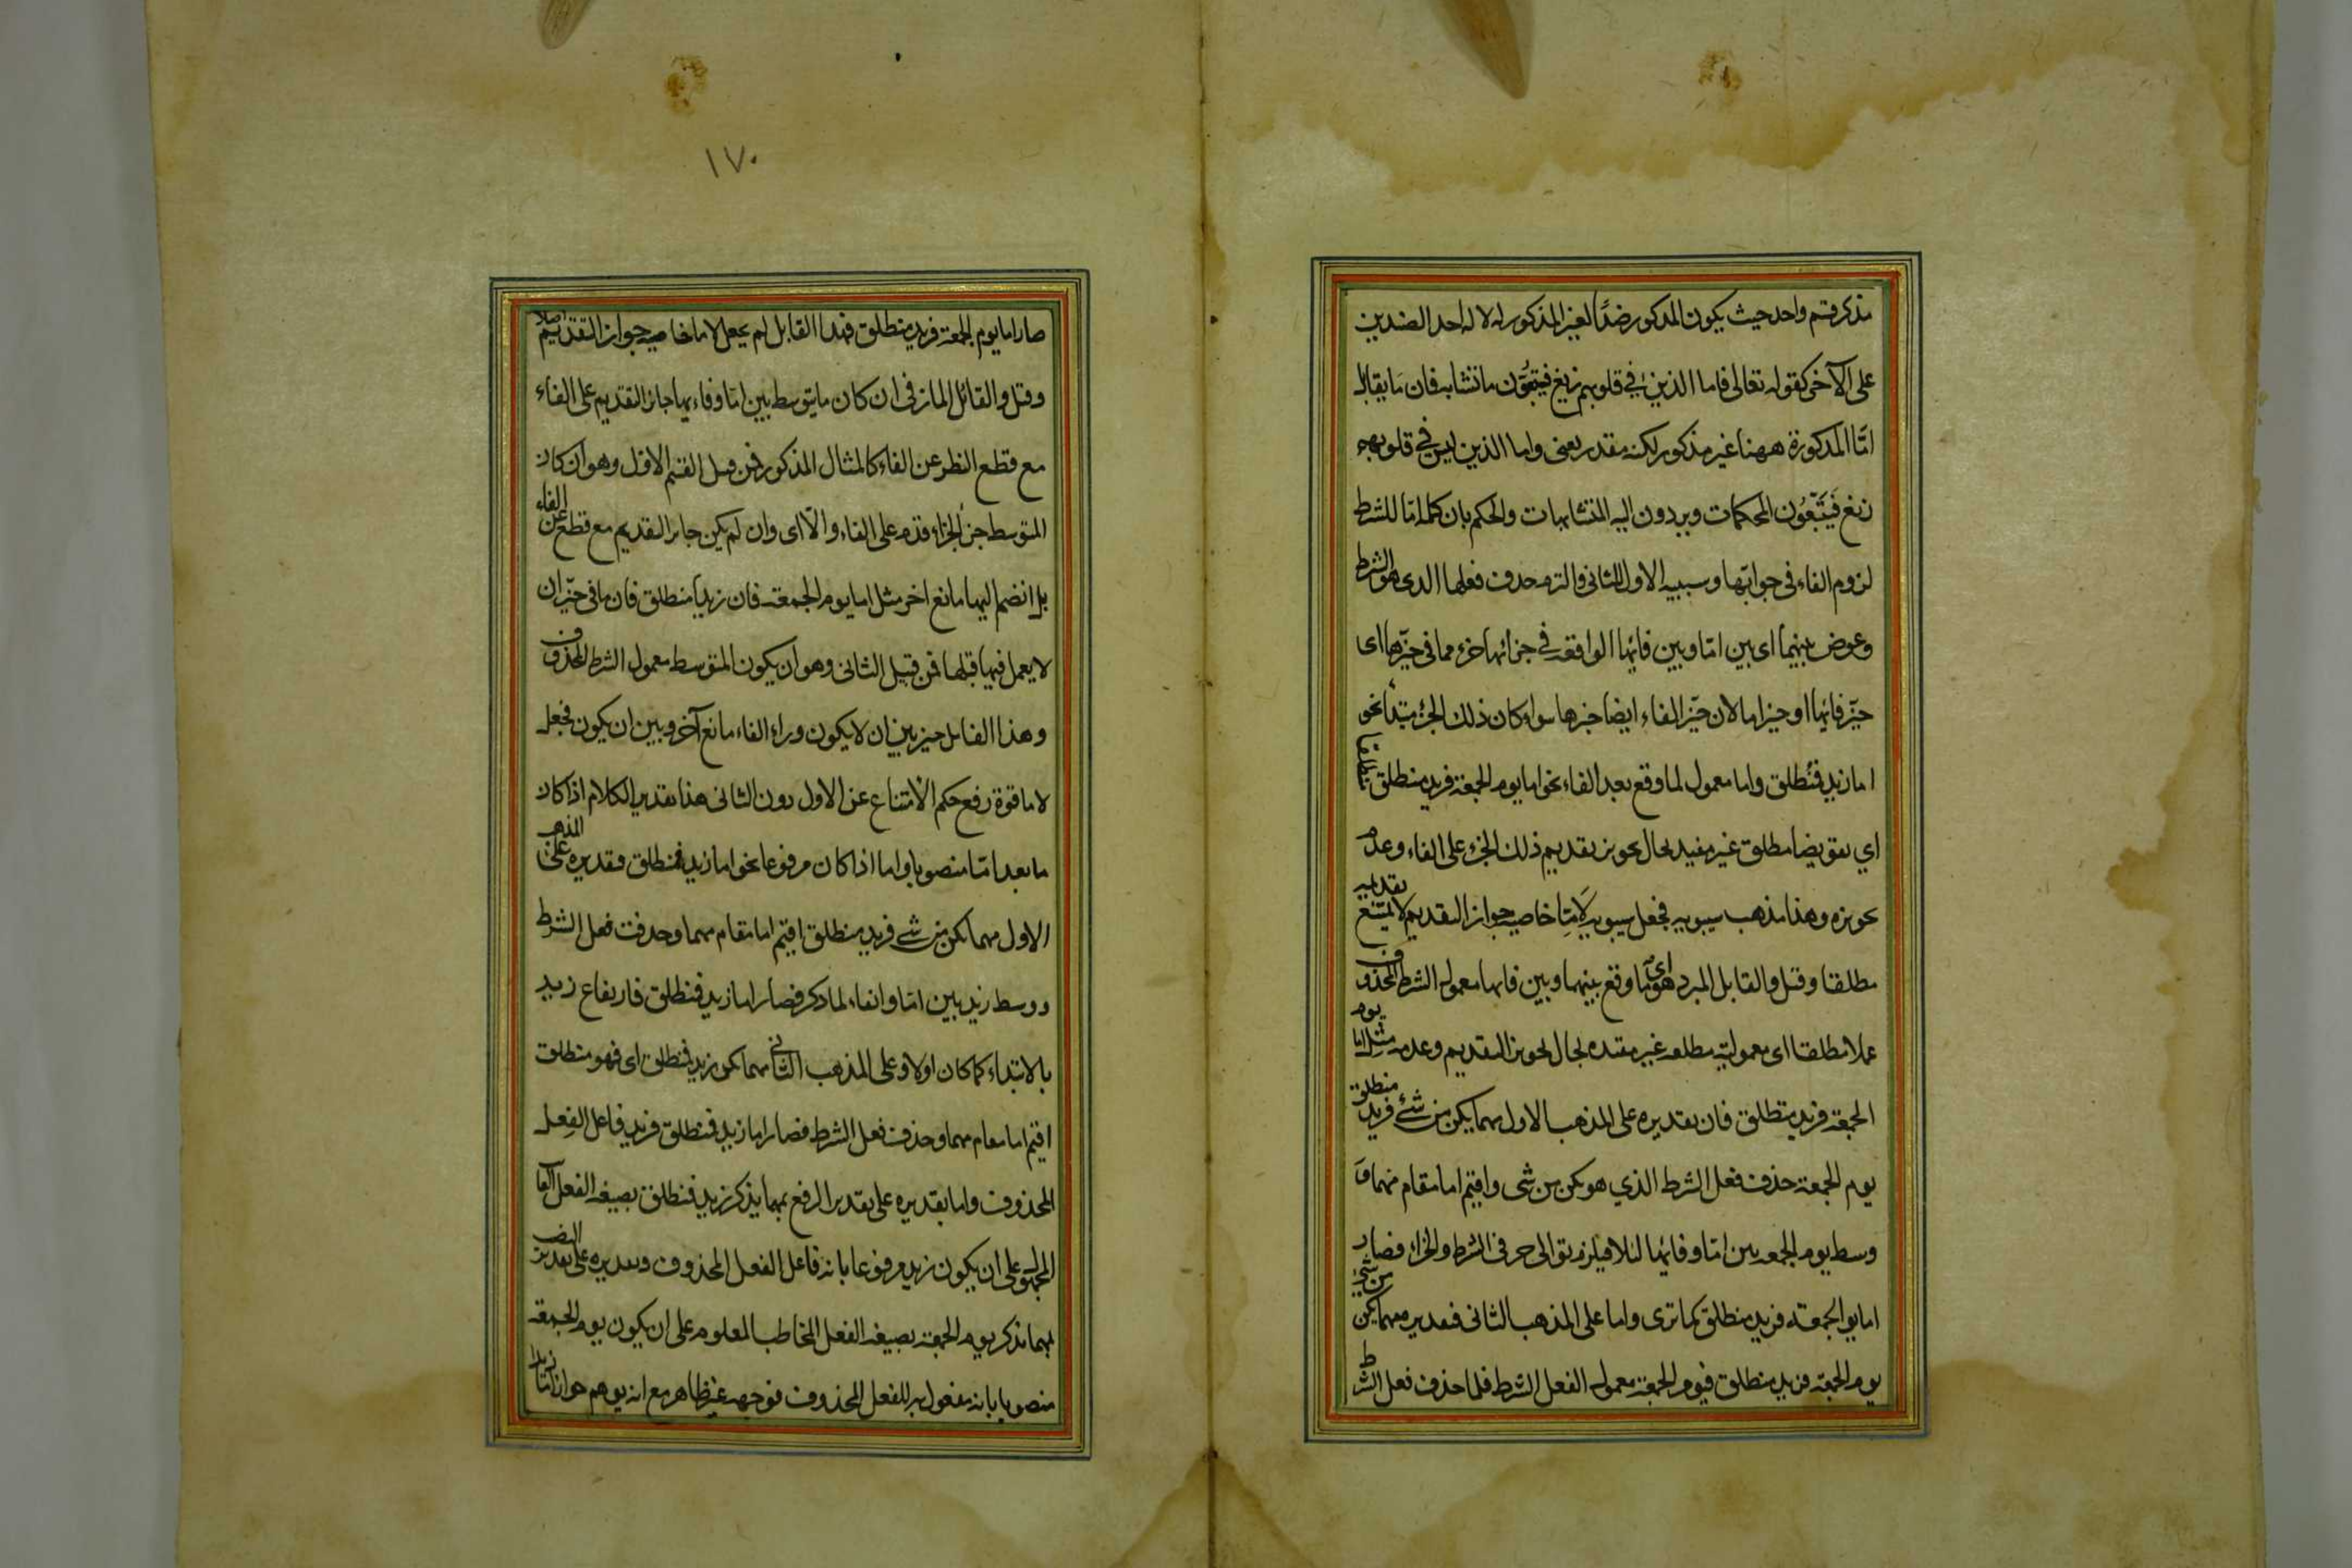 مذكر قسم واحد حيث يكون المذكور ضدًّا لغير المذكور له لا له احد الضدين
على الآخر كقوله تعالى فاما الذين في قلوبهم زيغ فيتبعون ما تشابه فان مَا يقابل
امّا المذكورة ههنا غير مذكور لكنه مقدر يعنى واما الذين ليس في قلوبهم
زيغ فَيَتَّبِعُون المحكمات ويردون اليه المتشابهات والحكم بان كلمة امّا للشرط
لزوم الفاء في جوابها وسببيه الاول للثانى والتزم حذف فعلها الذى هو الشرط
وعوض بينهما اى بين امّا وبين فائها الواقعه في جزائها جزء مما في حيّزها اى
حيّز فائها او حيز اما لان حيّز الفاء ايضا حيزها سواء كان ذلك الجزء مبتدأ نحو
اما زيد فمنطلق واما معمول لما وقع بعد الفاء نحو اما يوم الجمعة فزيد منطلق مطلقا
اي تعويضا مطلقا غير مقيد بحال تجويز تقديم ذلك الجزء على الفاء وعدم
تجويزه وهذا مذهب سيبويه فجعل سيبويه لِاَمّا خاصيه جواز التقديم لا يمتنع تقديمه
مطلقا وقيل والقايل المبرد هو اى ما وقع بينهما وبين فائها معمول الشرط المحذوف
عملا مطلقا اى معموليته مطلقه غير مقيده بحال تجويز التقديم وعدمه مثل اما يوم
الجمعة فزيد منطلق فان تقديره على المذهب الاول مهما يكن من شئ فزيد منطلق
يوم الجمعة حذف فعل الشرط الذي هو يكن من شى واقيم اما مقام مهما وَ
وسط يوم الجمعه بين امّا وفائها لئلا يلزم توالى حرفى الشرط والجزاء فصار
اما يوم الجمعة فزيد منطلق كما ترى واما على المذهب الثانى فتقديره مهما يكن من شئ
يوم الجمعة فزيد منطلق فيوم الجمعة معمول الفعل الشرط فلما حذف فعل الشرط
١٧٠
صار اما يوم الجمعة فزيد منطلق فهذا القايل لم يجعل لاما خاصيه جواز التقديم اصلا
وقيل والقائل المازنى ان كان ما يتوسط بين امّا وفاءها جائز التقديم على الفاء
مع قطع النظر عن الفاء كالمثال المذكور فمن قبيل القسم الاول وهو ان كان
المتوسط جزء الجزاء قدم على الفاء والّا اى وان لم يكن جائز التقديم مع قطع عن الفاء
بل انضم اليها مانع اخر مثل اما يوم الجمعة فان زيدا منطلق فان ما في حيّز ان
لا يعمل فيما قبلها فمن قبيل الثانى وهو ان يكون المتوسط معمول الشرط المحذوف
وهذا القايل ميز بين ان لا يكون وراء الفاء مانع آخر وبين ان يكون فجعل
لاما قوة رفع حكم الامتناع عن الاول دون الثانى هذا تقدير الكلام اذا كان
ما بعد امّا منصوبا واما اذا كان مرفوعا نحو اما زيد فمنطلق فتقديره على المذهب
الاول مهما يكن من شئ فزيد منطلق اقيم اما مقام مهما وحذف فعل الشرط
ووسط زيد بين امّا والفاء لما ذكر فصار اما زيد فمنطلق فارتفاع زيد
بالابتداء كما كان اولا وعلى المذهب الثانى مهما يكن زيد فمنطلق اى فهو منطلق
اقيم اما مقام مهما وحذف فعل الشرط فصار اما زيد فمنطلق فزيد فاعل الفعل
المحذوف واما تقديره على تقدير الرفع بمهما يذكر زيد فمنطلق بصيغه الفعل الغا
المجهول على ان يكون زيد مرفوعا بانه فاعل الفعل المحذوف وتقديره على تقدير النصب
مهما تذكر يوم الجمعة بصيغه الفعل المخاطب المعلوم على ان يكون يوم الجمعة
منصوبا بانه مفعول به للفعل المحذوف فوجهه غير ظاهر مع انه يوهم جواز امّا زيدا